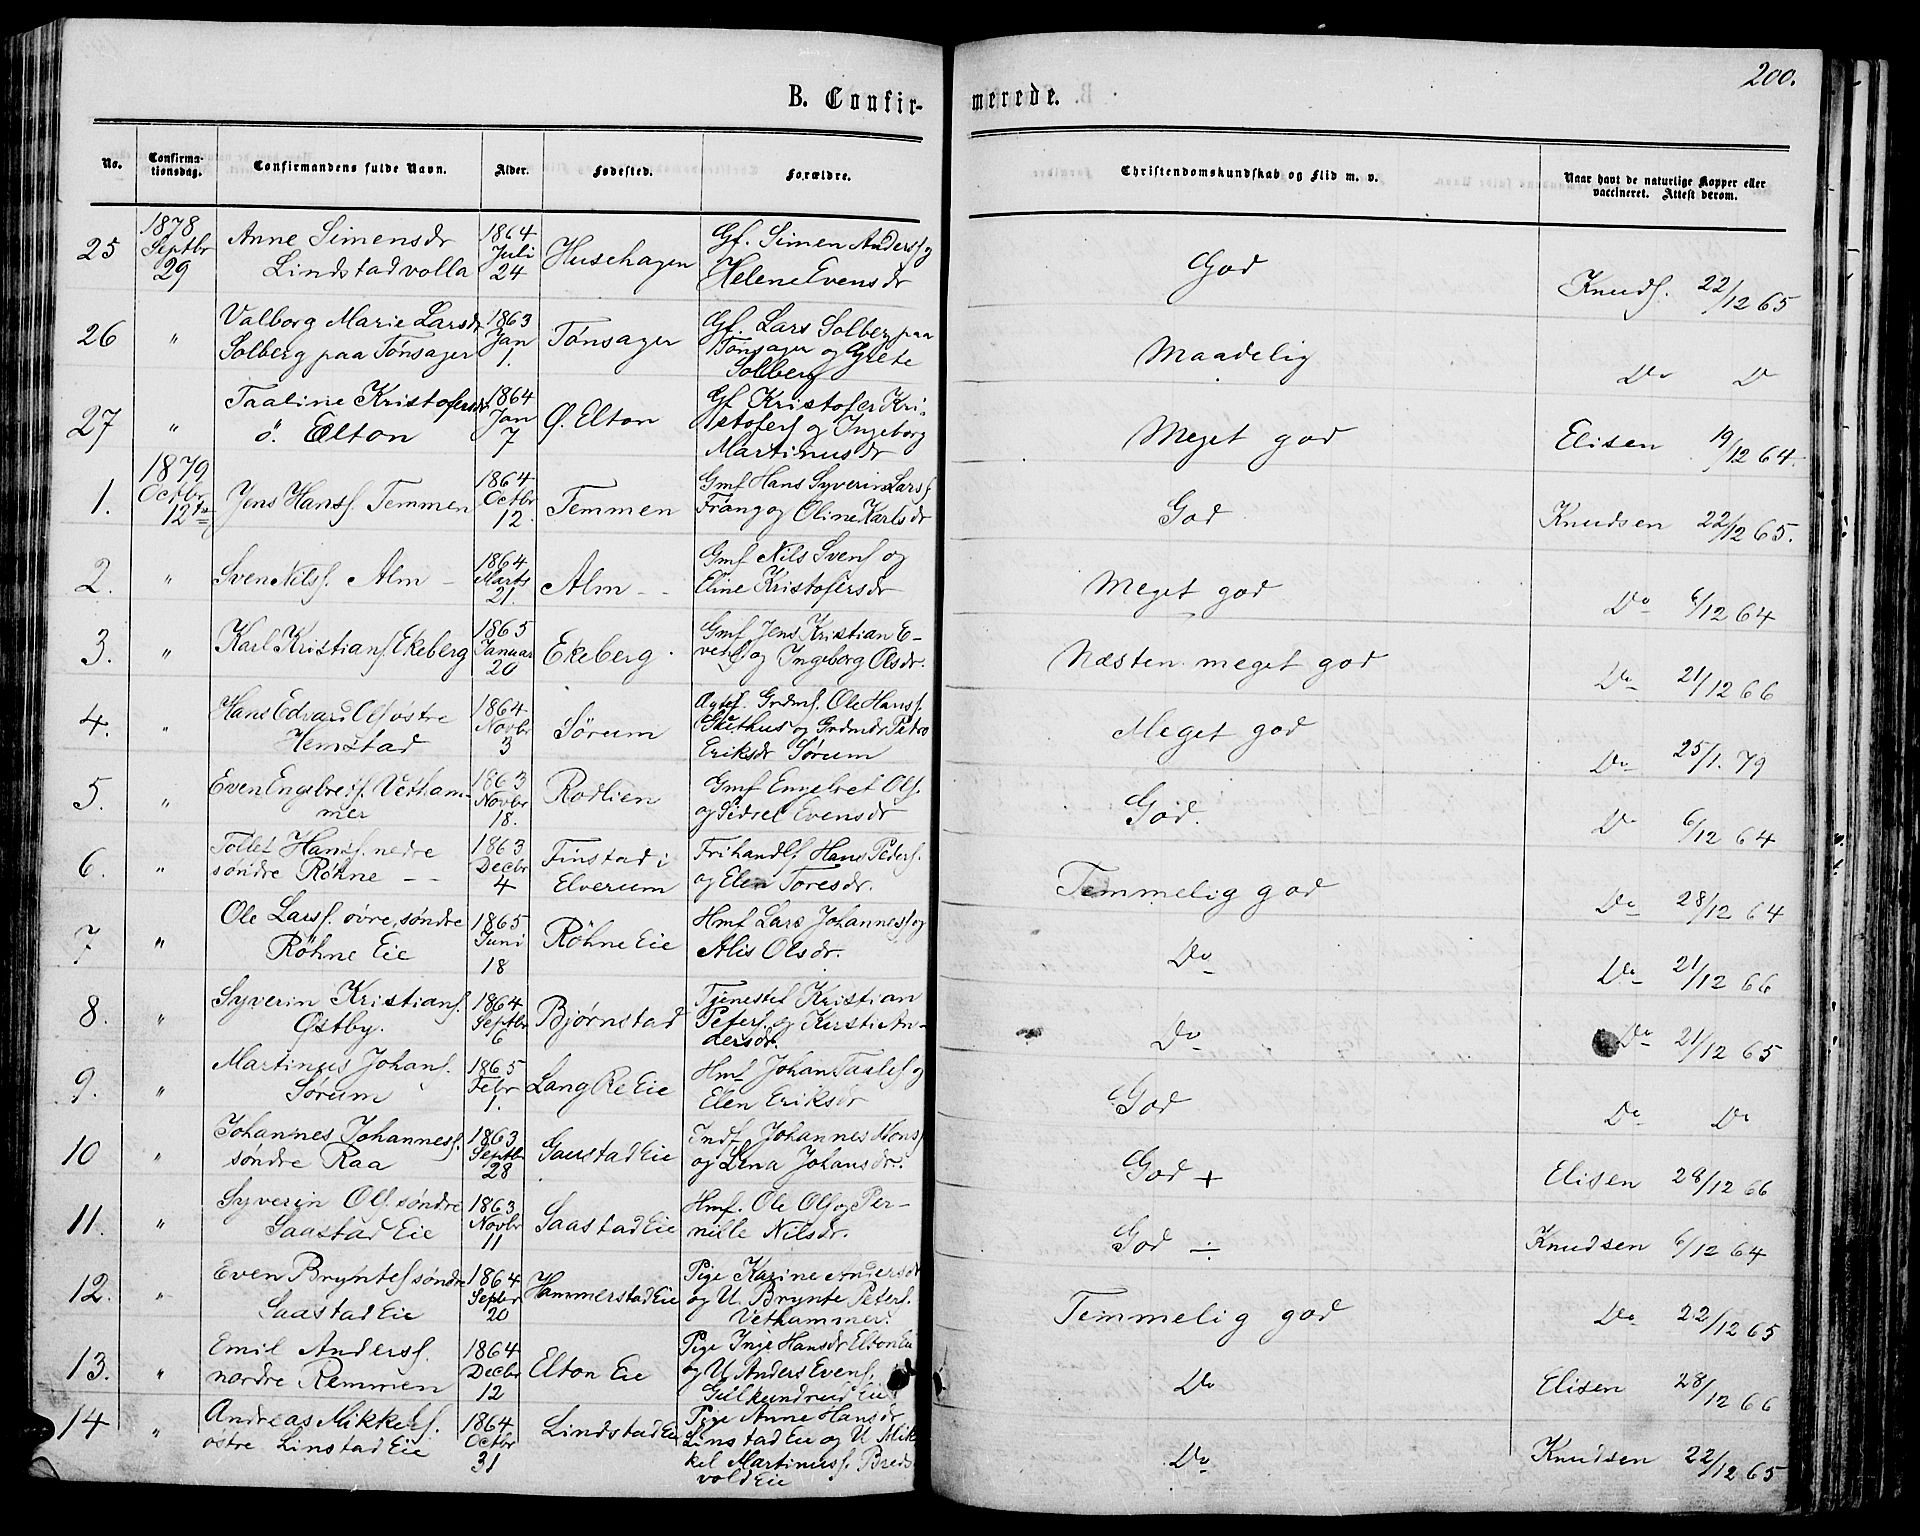 200.
B. Confirmerede.
No. Confirmationsdag. Confirmandens fulde Navn. Alder. Fødested. Forældre. Christendomskundskab og Flid m. v. Naar havt de naturlige Kopper eller vaccineret. Attest derom.
25 1878 Septbr 29 Anne Simensdr Lindstadvolla 1864 Juli 24 Husehagen Gf. Simen Anders. og Helene Evensdr God Knuds. 22/12 65
26 " Valborg Marie Larsdr Solberg paa Tønsager 1863 Jan 1. Tønsager Gf. Lars Solberg paa Tønsager og Grete Solberg Maadelig Do Do
27 " Taaline Kristofersdr ö. Elton 1864 Jan 7 Ø. Elton Gf Kristofer Kristofers. og Ingeborg Martinusdr Meget god Elisen 19/12 64.
1. 1879 Octbr 12te Jens Hans. Temmen 1864 Octbr 12. Temmen Gmf Hans Syverin Lars. Frang og Oline Karlsdr God Knudsen 22/12 65.
2. " Sven Nils. Alm - 1864 Marts 21. Alm - - Gmf Nils Svens. og Eline Kristofersdr Meget god Do 6/12 64
3. " Karl Kristians. Ekeberg 1865 Januar 20 Ekeberg. Gmf Jens Kristian Evens. og Ingeborg Olsdr. Næsten meget god Do 21/12 66
4. " Hans Edvard Ols. østre Hemstad 1864 Novbr 3 Sørum Ole Hans. og Eriksdr Sørum Meget god Do 25/1. 79
5. " Even Engebrets. Vethammer 1863 Novbr 18. Rodlien Gmf Engebret Ols. og Sidsel Evensdr God. Do 6/12 64
6. " Tollef Hans. nedre søndre Røhne - - 1863 Decbr 4 Finstad i Elverum Frihandls Hans Peders. og Elen Toresdr. Temmelig god Do 28/12 64
7 " Ole Lars. øvre, søndre Röhne Eie 1865 Juni 18 Röhne Eie Hmf Lars Johannes. og Alis Olsdr. Do Do 21/12 66
8. " Syverin Kristians. Østby. 1864 Septbr 6 Bjørnstad Tjenestef Kristian Peters. og Kersti Andersdr. Do Do 21/12 65
9. " Martinus Johans. Sørum 1865 Febr 1. Lang Re Eie Hmf Johan Taales. og Elen Eriksdr God Do Do
10 " Johannes Johannes. søndre Raa 1863 Septbr 28 Gaustad Eie Indf Johannes Mons. og Lena Johansdr. God + Elisen 28/12 66
11. " Syverin Ols. søndre Saastad Eie 1863 Novbr 11 Saastad Eie Hmf. Ole Ols. og Pernille Nilsdr. God ÷ Knudsen 6/12 64
12. " Even Bryntes. søndre Saastad Eie 1864 Septbr 20 Hammerstad Eie Pige Karine Andersdr og U. Brynte Peters. Vethammer. Temmelig god Do 22/12 65
13. " Emil Anders. nordre Remmen 1864 Decbr 12 Elton Eie Pige Inge Hansdr Elton Eie og U Anders Evens. Gulkundrud Eie Do Elisen 28/12 66
14 " Andreas Mikkels. østre Linstad Eie 1864 Octbr 31 Lindstad Eie Pige Anne Hansdr Linstad Eie og U Mikkel Martinus. Bredsvold Eie Do Knudsen 22/12 65